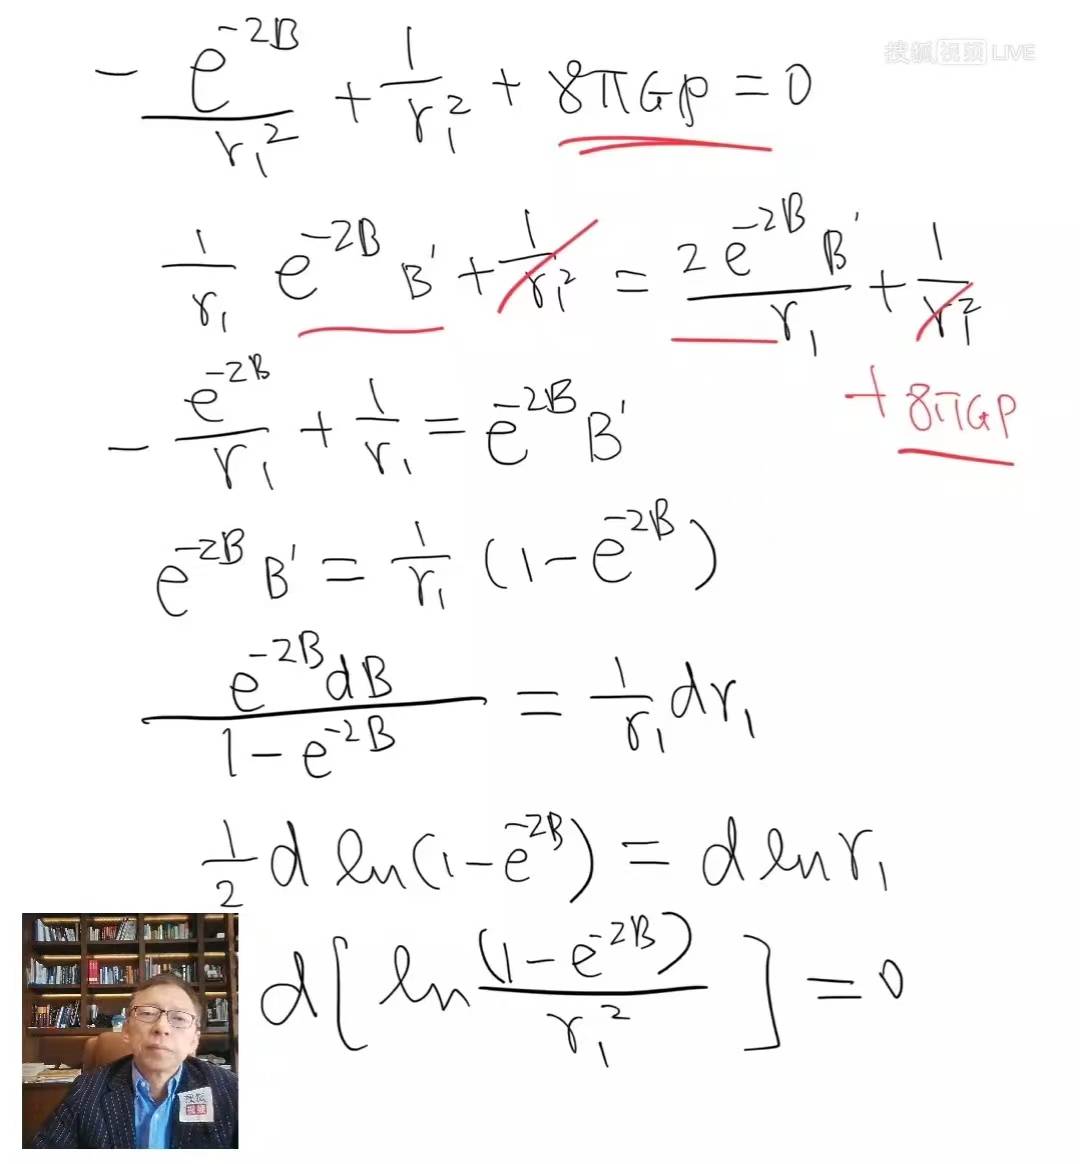 搜狐视频 LIVE
- e^{-2B}/r₁² + 1/r₁² + 8πGρ = 0
1/r₁ e^{-2B} B' + 1/r₁² = 2e^{-2B} B'/r₁ + 1/r₁²
+ 8πGρ
- e^{-2B}/r₁ + 1/r₁ = e^{-2B} B'
e^{-2B} B' = 1/r₁ (1 - e^{-2B})
e^{-2B} dB/1 - e^{-2B} = 1/r₁ dr₁
1/2 d ln(1 - e^{-2B}) = d ln r₁
d[ ln (1 - e^{-2B})/r₁² ] = 0
搜狐
视频